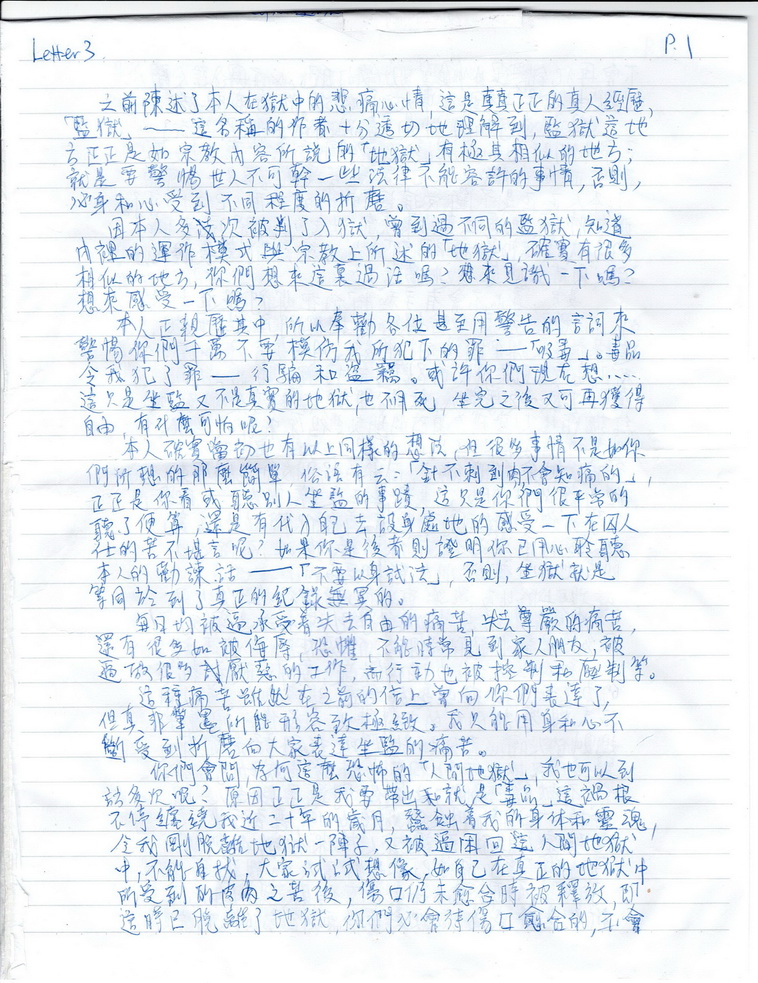 Letter 3
P.1
之前陳述了本人在獄中的悲痛心情,這是真真正正的真人經歷,
「監獄」——這名稱的作者十分適切地理解到,監獄這地
方正正是如宗教內容所說的「地獄」有極其相似的地方;
就是要警惕世人不可幹一些法律不能容許的事情,否則,
心身和心受到不同程度的折磨。
因本人多次被判了入獄,曾到過不同的監獄,知道
內裡的運作模式與宗教上所述的「地獄」,確實有很多
相似的地方,你們想來這裏過活嗎?想來見識一下嗎?
想來感受一下嗎?
本人正親歷其中,所以奉勸各位甚至用警告的言詞來
警惕你們千萬不要模仿我所犯下的罪——「吸毒」。毒品
令我犯了罪——行騙和盜竊。或許你們現在想……
這只是坐監又不是真實的地獄,也不用死,坐完之後又可再獲得
自由,有什麼可怕呢?
本人確實當初也有以上同樣的想法,但很多事情不是如你
們所想的那麼簡單,俗語有云:「針不刺到肉不會知痛的」,
正正是你看或聽別人坐監的事蹟,這只是你們很平常的
聽了便算,還是有代入自己去設身處地的感受一下在囚人
仕的苦不堪言呢?如果你是後者則證明你已用心聆聽
本人的勸諫話——「不要以身試法」,否則,坐獄就是
等同於到了真正的
每日均被逼承受着失去自由的痛苦,失去尊嚴的痛苦,
還有很多如被侮辱,恐懼,不能時常見到家人朋友,被
逼做很多討厭惡的工作,而行動也被控制和壓制等。
這種痛苦雖然在之前的信上曾向你們表達了,
但真非筆墨所能形容致極緻。我只能用身和心不
斷受到折磨向大家表達坐監的痛苦。
你們會問,為何這麼恐怖的「人間地獄」,我也可以到
訪多次呢?原因正正是我要帶出和就是「毒品」這禍根
不停纏繞我近二十年的歲月,蠶蝕着我的身体和靈魂,
令我剛脫離地獄一陣子,又被逼困回這人間地獄
中,不能自找,大家試試想像,如自己在真正的地獄中
所受到所皮肉之苦後,傷口仍未愈合時被釋放,即
這時已脫離了地獄,你們必會待傷口愈合的,不會